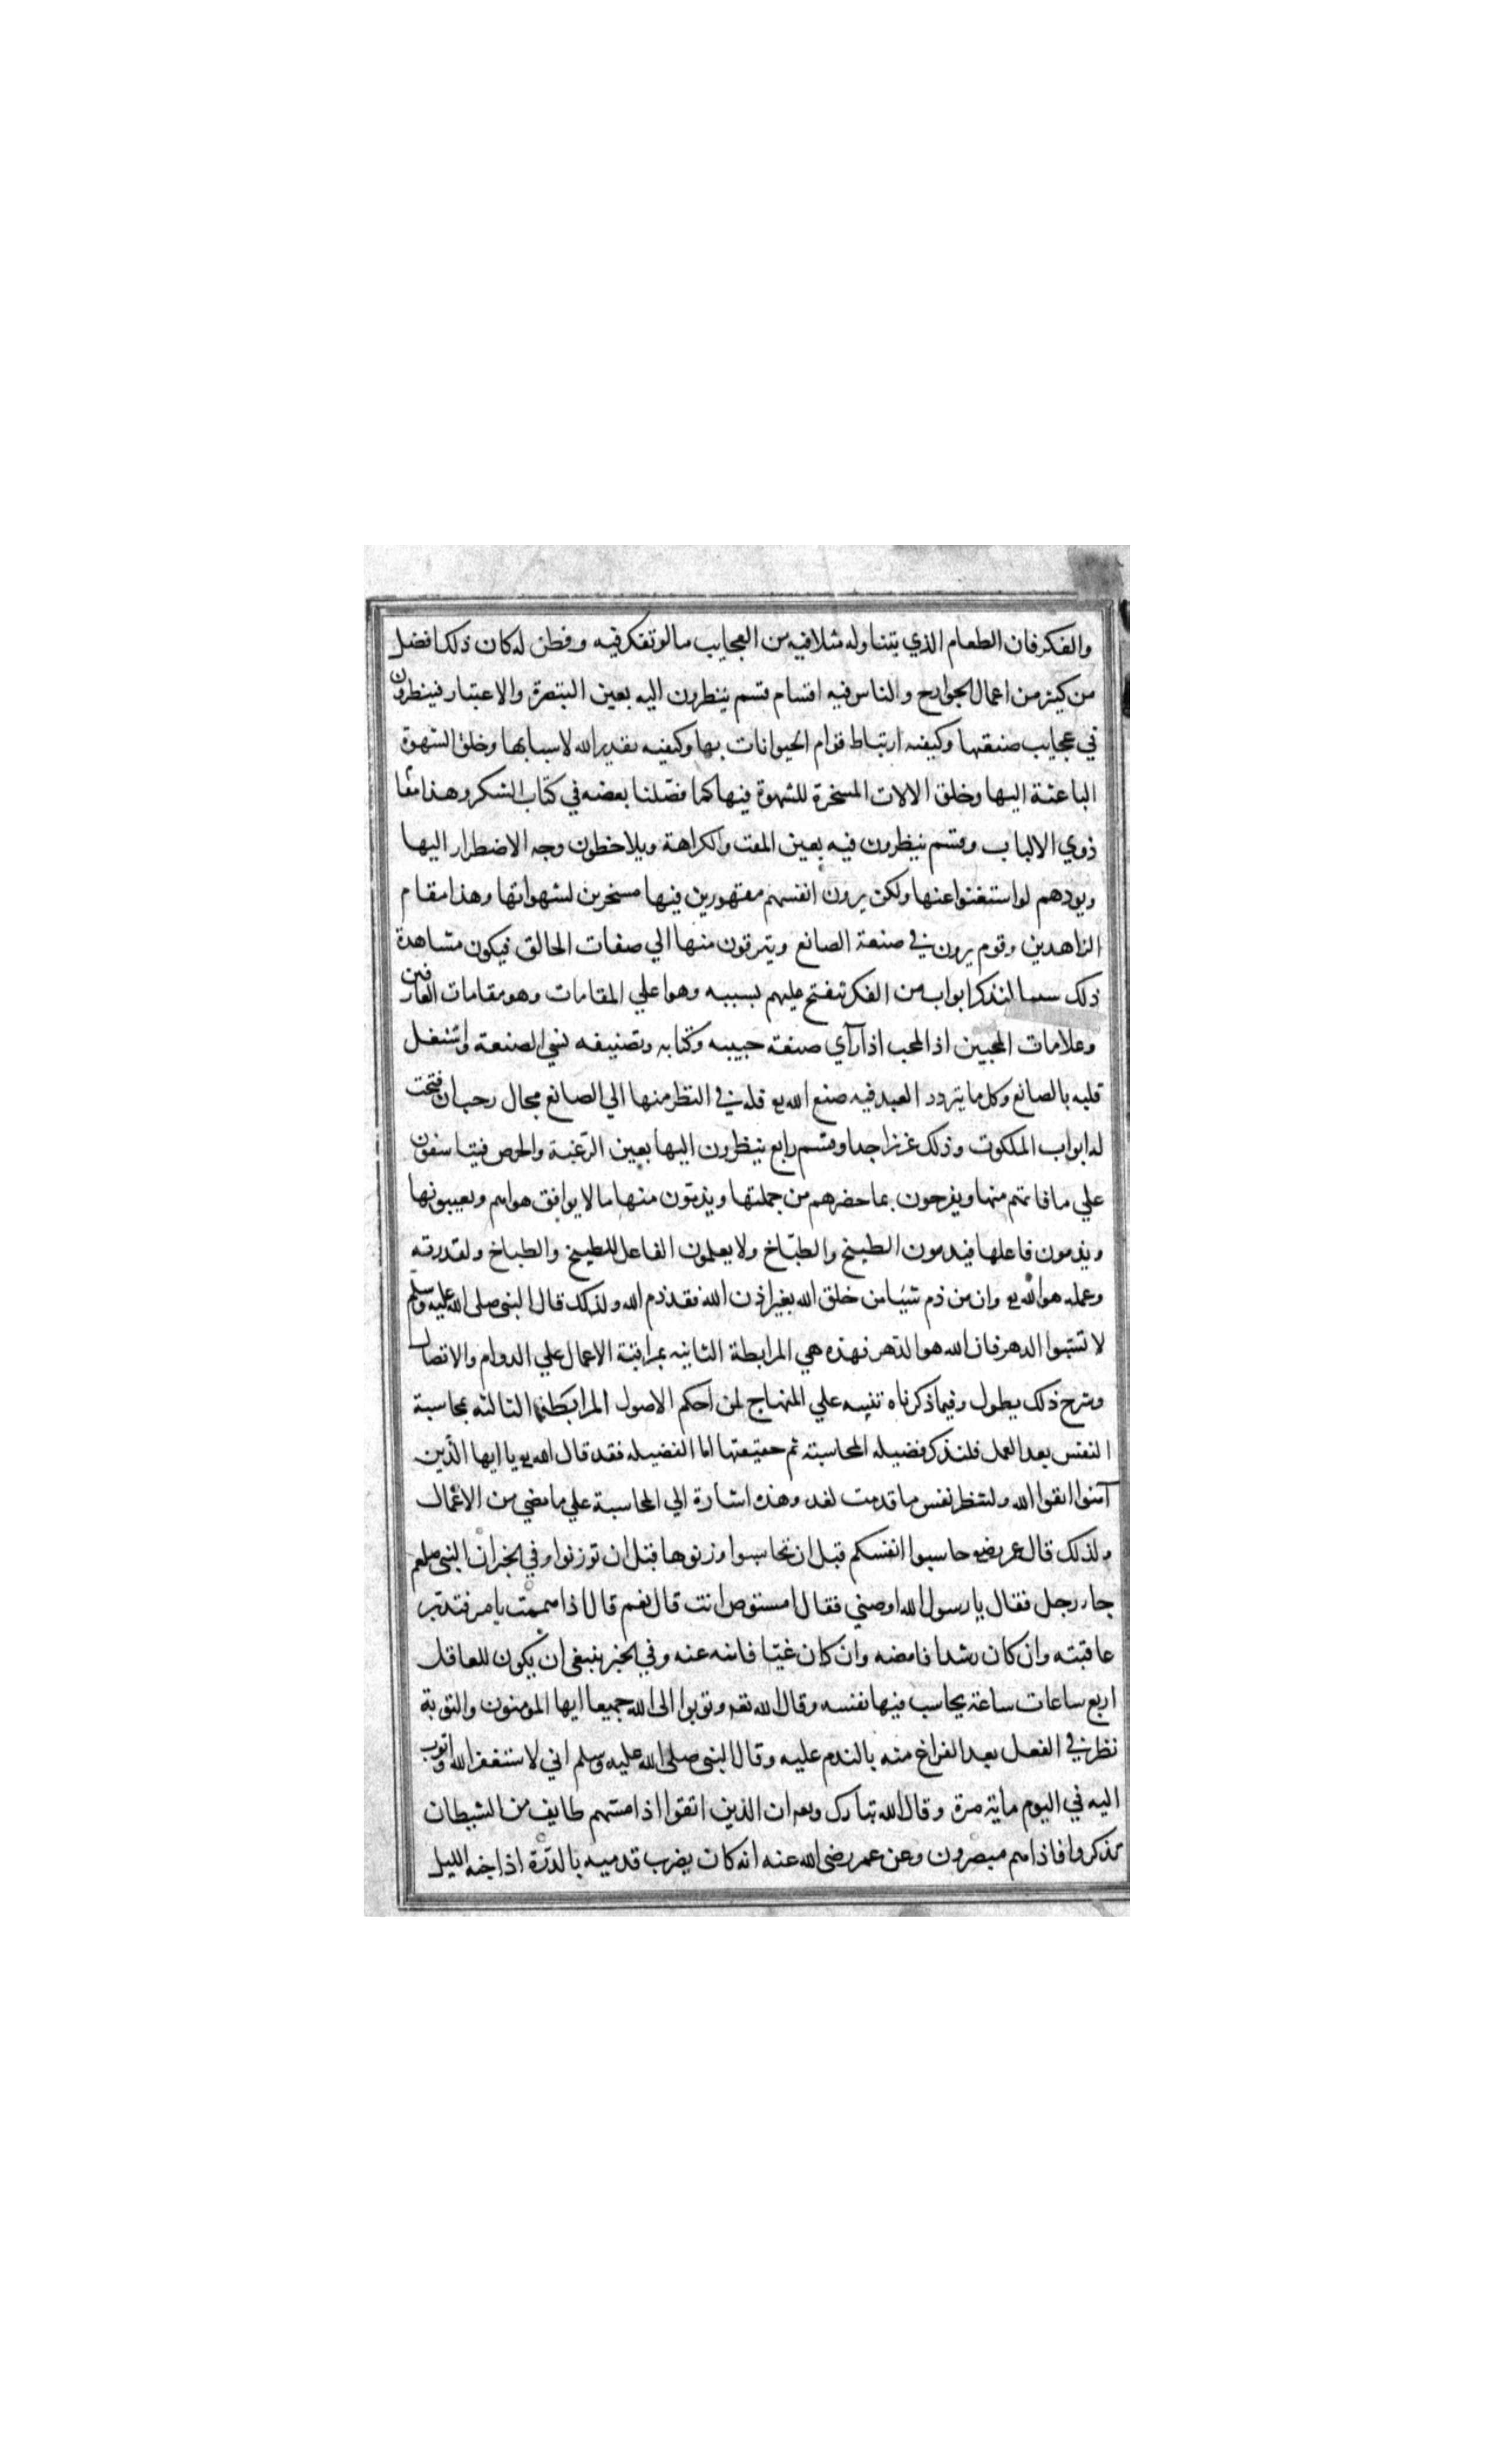 والفكر فان الطعام الذي يتناوله مثلا فيه من العجايب ما لو تفكر فيه وفطن له كان ذلك افضل
من كثير من اعمال الجوارح والناس فيه اقسام قسم ينظرون اليه بعين التبصرة والاعتبار فينظرون
في عجايب صنعتها وكيفيه ارتباط قوام الحيوانات بها وكيفيه تقدير الله لاسبابها وخلق الشهوة
الباعثة اليها وخلق الالات المسخرة للشهوة فيها كما فصّلنا بعضه في كتاب الشكر وهذا مقام
ذوي الالباب وقسم ينظرون فيه بعين المقت والكراهة ويلاحظون وجه الاضطرار اليها
وبودهم لو استغنوا عنها ولكن يرون انفسهم مقهورين فيها مسخرين لشهواتها وهذا مقام
الزاهدين وقوم يرون في صنعة الصانع ويترقون منها الي صفات الخالق فيكون مشاهدة
ذلك سببا لتذكر ابواب من الفكر تنفتح عليهم بسببه وهو اعلي المقامات وهو مقامات العارفين
وعلامات المحبين اذ المحب اذا رآي صنعة حبيبه وكتابه وتصنيفه نسي الصنعة واشتغل
قلبه بالصانع وكل ما يتردد العبد فيه صنع الله تع فله في النظر منها الي الصانع مجال رحب ان فتحت
له ابواب الملكوت وذلك عزيز جدا وقسم رابع ينظرون اليها بعين الرّغبة والحرص فيتاسفون
علي ما فاتهم منها ويفرحون بما حضرهم من جملتها ويذمّون منها ما لا يوافق هواهم ويعيبونها
ويذمون فاعلها فيذمون الطبيخ والطبّاخ ولا يعلمون الفاعل للطبيخ والطباخ ولقدرته
وعمله هو الله تع وان من ذم شيئا من خلق الله بغير اذن الله فقد ذم الله ولذلك قال النبي صلى الله عليه وسلم
لا تسبّوا الدهر فان الله هو الدّهر فهذه هي المرابطة الثانيه بمراقبة الاعمال علي الدوام والاتصال
وشرح ذلك يطول وفيما ذكرناه تنبيه علي المنهاج لمن احكم الاصول المرابطة الثالثه محاسبة
النفس بعد العمل فلنذكر فضيله المحاسبة ثم حقيقتها اما الفضيله فقد قال الله تع يا ايها الّذين
آمنوا اتقوا الله ولتنظر نفس ما قدمت لغد وهذه اشارة الي المحاسبة علي ما مضي من الاعمال
ولذلك قال عمر رضي حاسبوا انفسكم قبل ان تحاسبوا وزنوها قبل ان توزنوا وفي الخبر ان النبي صلعم
جاه رجل فقال يا رسول الله اوصني فقال امستوص انت قال نعم قال اذا هممت بامر فتدبّر
عاقبته وان كان رشدا فامضه وان كان غيّا فانته عنه وفي الخبر ينبغي ان يكون للعاقل
اربع ساعات ساعة يحاسب فيها نفسه وقال الله تعه وتوبوا الى الله جميعا ايها المومنون والتوبة
نظر في الفعل بعد الفراغ منه بالندم عليه وقال النبي صلى الله عليه وسلم اني لاستغفر الله واتوب
اليه في اليوم مأية مرة وقال الله تبارك وتعه ان الذين اتقوا اذا مسّهم طايف من الشيطان
تذكروا فاذا هم مبصرون وعن عمر رضي الله عنه انه كان يضرب قدميه بالدرّة اذا جنه الليل